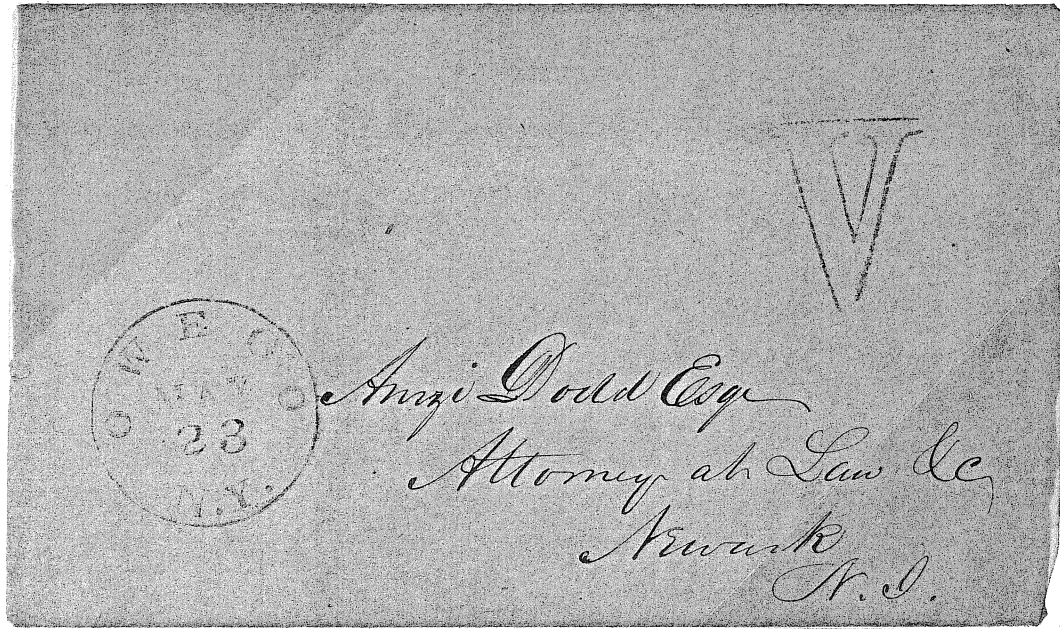 V
OWEGO
MAY
23
N.Y.
Amzi Dodd Esqr
Attorney at Law &c,
Newark
N. J.